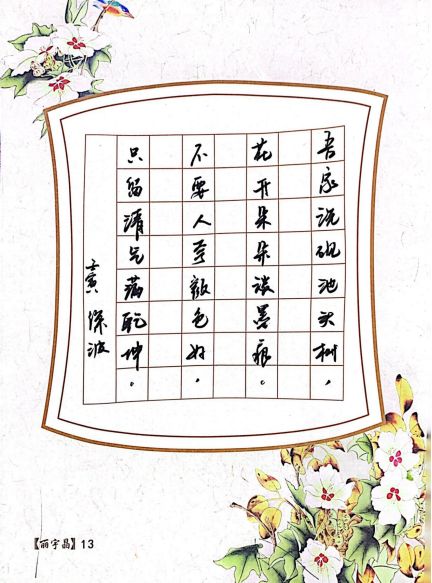 吾家洗砚池头树，
花开朵朵淡墨痕。
不要人夸颜色好，
只留清气满乾坤。
壬寅 深波
【丽宇晶】13